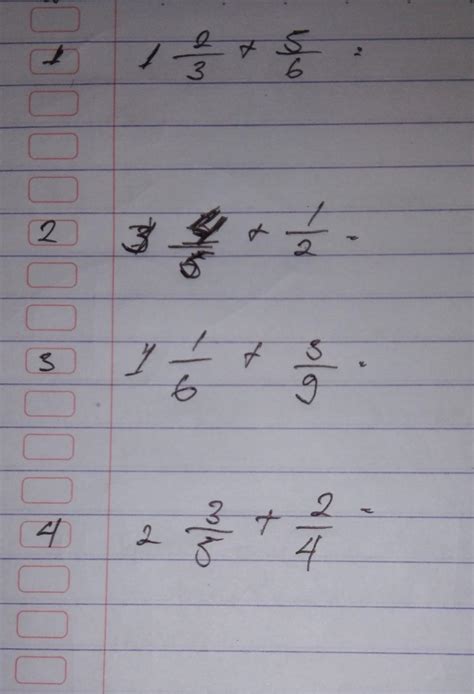 1 1 2/3 + 5/6 =
2 3 /5 + 1/2 =
3 1 1/6 + 3/9 =
4 2 3/5 + 2/4 =